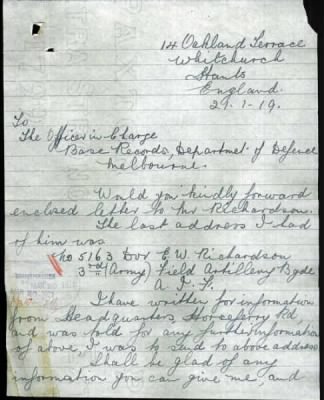 14 Oakland Terrace
Whitchurch
Hants
England.
29.1-19.
To
The Officer in Charge
Base Records, Departmet of Defence
Melbourne.
Would you kindly forward
enclosed letter to Mr Richardson.
The last address I had
of him was
No 5163 Dvr E. W. Richardson
3rd (Army) Field Artillery Bgde
A. I. F.
I have written for information
from Headquarters, Horseferry Rd
and was told for any further information
of above, I was to send to above address
Shall be glad of any
information you can give me, and